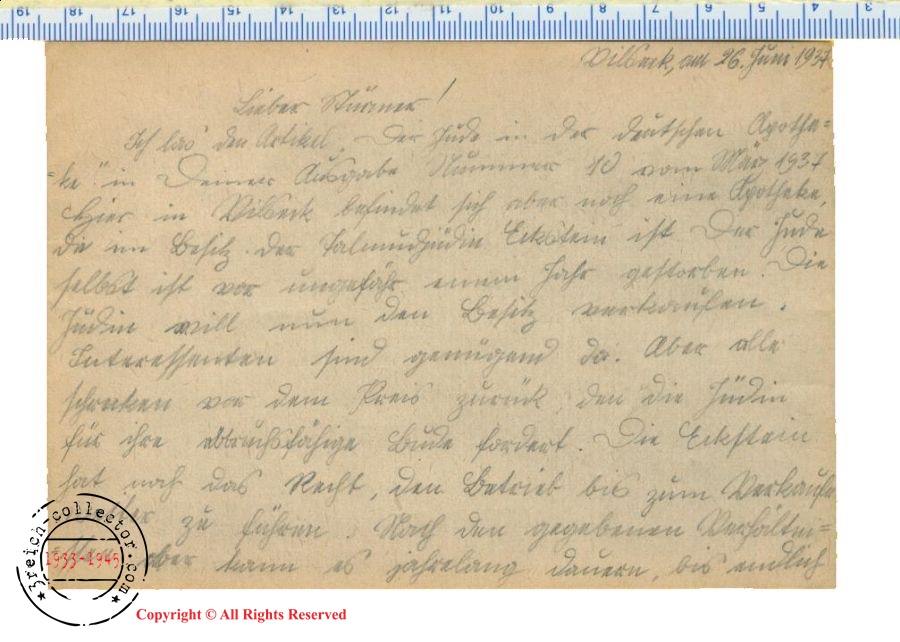 19 18 17 16 15 14 13 12 11 10 9 8 7 6 5 4 3
Vilseck, am 26. Juni 1937
Lieber Stürmer!
Ich las den Artikel „Der Jude in der deutschen Apothe=
=ke" in Deiner Ausgabe Nummer 10 vom März 1937
Hier in Vilseck befindet sich aber noch eine Apotheke,
die im Besitz der Talmudjüdin Eckstein ist. Der Jude
selbst ist vor ungefähr einem Jahr gestorben. Die
Jüdin will nun den Besitz verkaufen.
Interessenten sind genügend da. Aber alle
schrecken vor dem Preis zurück, den die Jüdin
für ihre abbruchsfähige Bude fordert. Die Eckstein
hat noch das Recht, den Betrieb bis zum Verkaufe
zu führen. Nach den gegebenen Verhältni=
aber kann es jahrelang dauern, bis endlich
3reich-collector.com
1933-1945
Copyright © All Rights Reserved